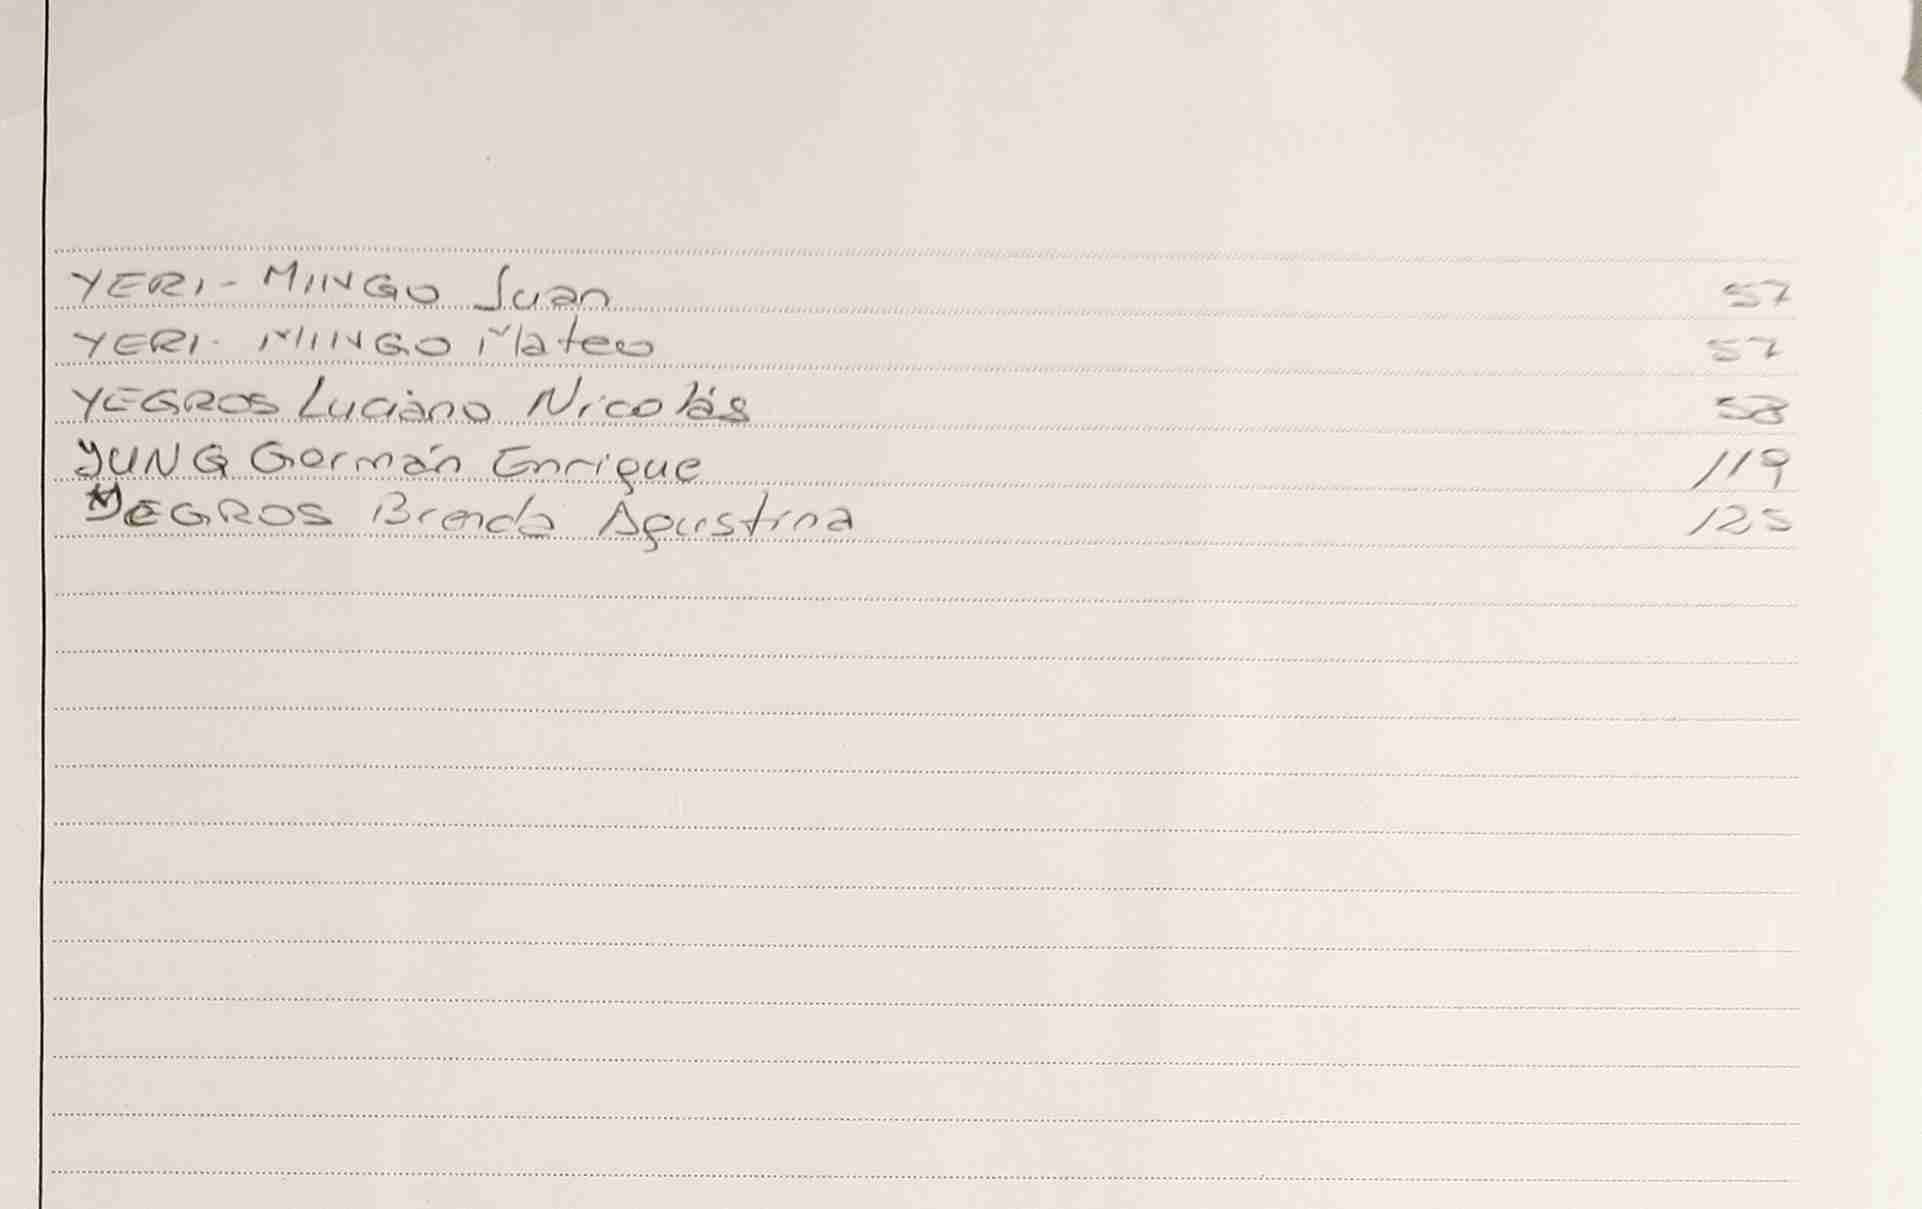 YERI-MINGO Juan 57
YERI-MINGO Mateo 57
YEGROS Luciano Nicolás 58
YUNG Germán Enrique 119
YEGROS Brenda Agustina 125